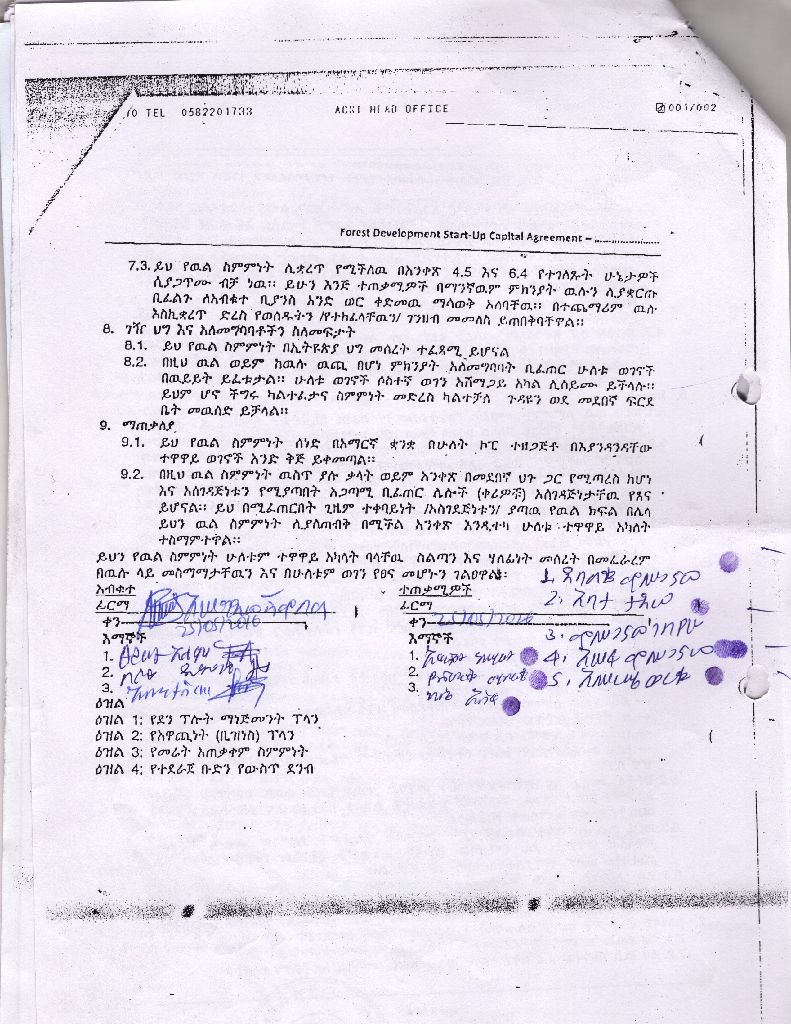 TEL 0582201733 ACSI HEAD OFFICE 001/002
Forest Development Start-Up Capital Agreement – .....................
7.3. ይህ የዉል ስምምነት ሊቋረጥ የሚችለዉ በአንቀጽ 4.5 እና 6.4 የተገለጹት ሁኔታዎች
ሲያጋጥሙ ብቻ ነዉ፡፡ ይሁን እንጅ ተጠቃሚዎች በማንኛዉም ምክንያት ዉሉን ሊያቋርጡ
ቢፈልጉ ለአብቁተ ቢያንስ አንድ ወር ቀድመዉ ማሳወቅ አለባቸዉ፡፡ በተጨማሪም ዉሉ
እስኪቋረጥ ድረስ የወሰዱትን /የተከፈላቸዉን/ ገንዘብ መመለስ ይጠበቅባቸዋል፡፡
8. ገዥ ህግ እና አለመግባባቶችን ስለመፍታት
8.1. ይህ የዉል ስምምነት በኢትዩጵያ ህግ መሰረት ተፈጻሚ ይሆናል
8.2. በዚህ ዉል ወይም ከዉሉ ዉጪ በሆነ ምክንያት አለመግባባት ቢፈጠር ሁለቱ ወገኖች
በዉይይት ይፈቱታል፡፡ ሁለቱ ወገኖች ሶስተኛ ወገን አሸማጋይ አካል ሊሰይሙ ይችላሉ፡፡
ይህም ሆኖ ችግሩ ካልተፈታና ስምምነት መድረስ ካልተቻለ ጉዳዩን ወደ መደበኛ ፍርድ
ቤት መዉሰድ ይቻላል፡፡
9. ማጠቃለያ
9.1. ይህ የዉል ስምምነት ሰነድ በአማርኛ ቋንቋ በሁለት ኮፒ ተዘጋጅቶ በእያንዳንዳቸው
ተዋዋይ ወገኖች አንድ ቅጅ ይቀመጣል፡፡
9.2. በዚህ ዉል ስምምነት ዉስጥ ያሉ ቃላት ወይም አንቀጽ በመደበኛ ህጉ ጋር የሚጣረስ ከሆነ
እና አስገዳጅነቱን የሚያጣበት አጋጣሚ ቢፈጠር ሌሎች (ቀሪዎቹ) አስገዳጅነታቸዉ የጸና
ይሆናል፡፡ ይህ በሚፈጠርበት ጊዜም ተቀባይነት /አስገደጅነቱን/ ያጣዉ የዉል ክፍል በሌላ
ይህን ዉል ስምምነት ሊያለጠብቅ በሚችል አንቀጽ እንዲተካ ሁለቱ ተዋዋይ አካላት
ተስማምተዋል፡፡
ይህን የዉል ስምምነት ሁለቱም ተዋዋይ አካላት ባላቸዉ ስልጣን እና ሃላፊነት መሰረት በመፈራረም
በዉሉ ላይ መስማማታቸዉን እና በሁለቱም ወገን የፀና መሆኑን ገልፀዋል፡
አብቁተ ተጠቃሚዎች
ፊርማ ፊርማ
ቀን 25/05/2016 ቀን 25/05/2016
እማኞች እማኞች
1. 1.
2. 2.
3. 3.
ዕዝል
ዕዝል 1: የደን ፕሎት ማኔጅመንት ፕላን
ዕዝል 2: የአዋጪነት (ቢዝነስ) ፕላን
ዕዝል 3: የመሬት አጠቃቀም ስምምነት
ዕዝል 4: የተደራጀ ቡድን የውስጥ ደንብ